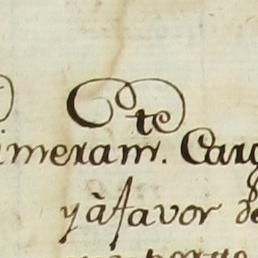 te
imeram. Carg
y à favor de